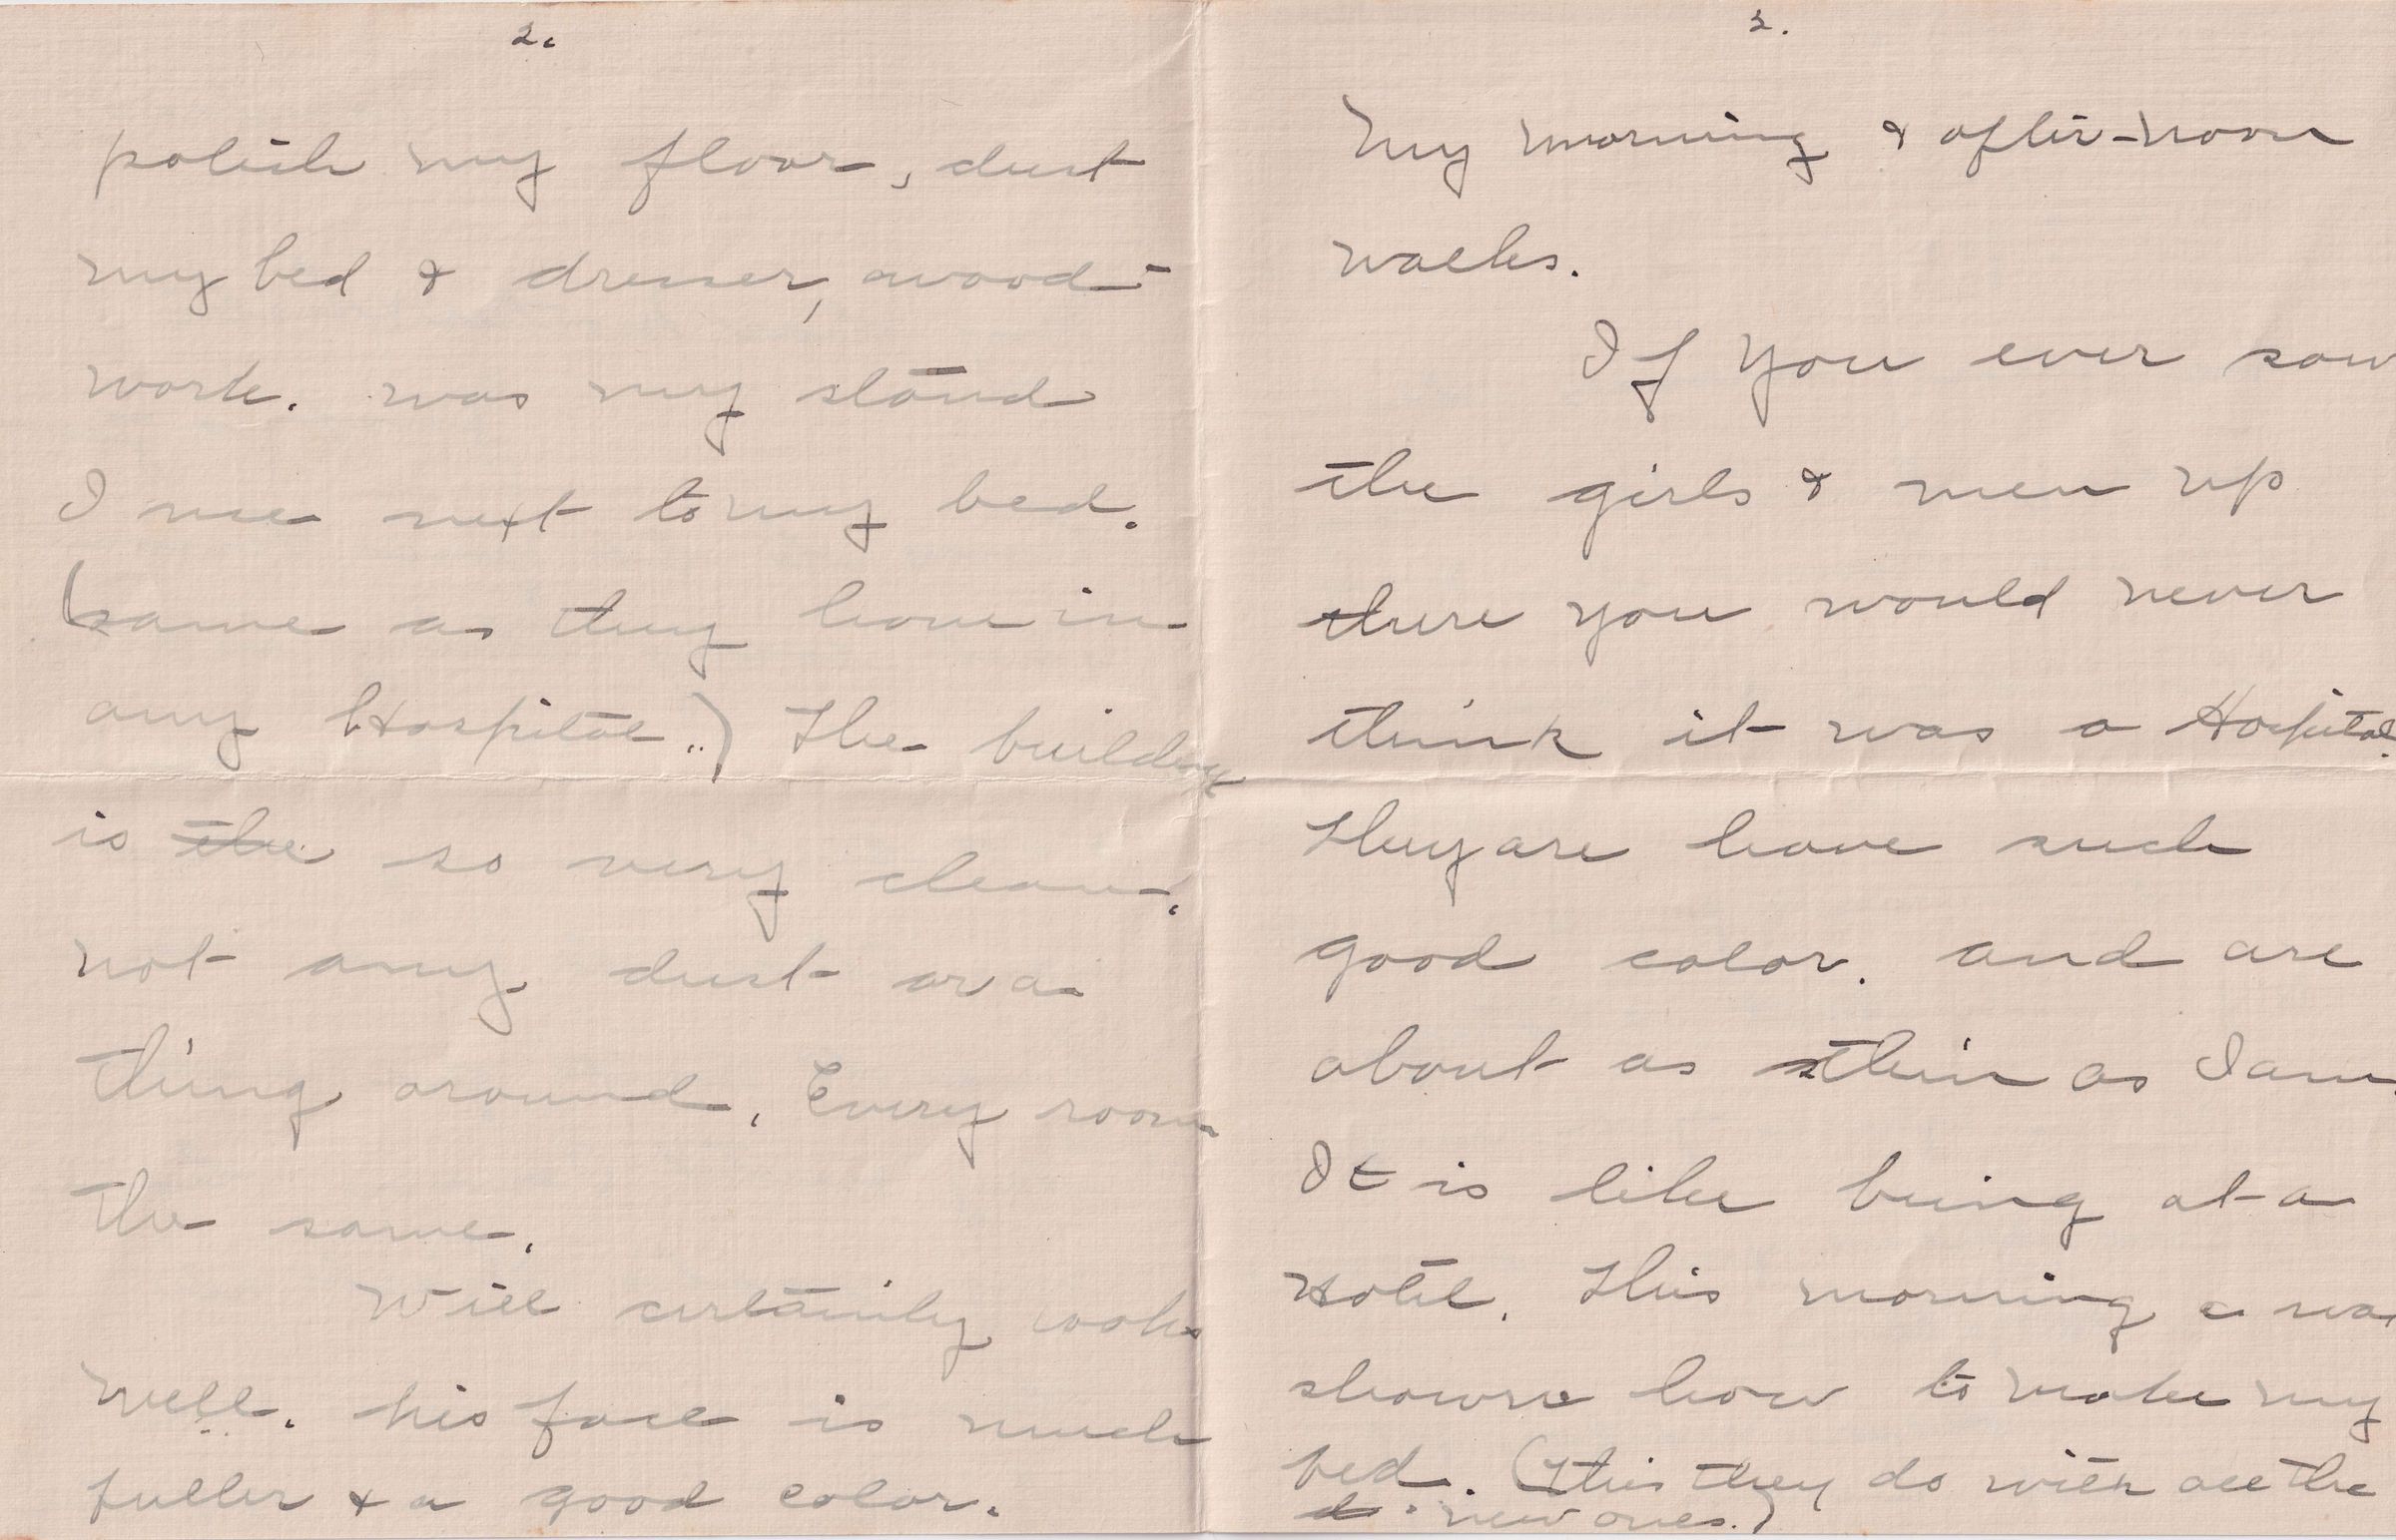 2.
polish my floor, dust
my bed & dresser, wood-
work. was my stand
I use next to my bed.
(same as they have in
any Hospital..) The building
is the so very clean,
not any dust or a
thing around. Every room
the same.
Will certainly looks
well. his face is much
fuller & a good color.
3.
My morning & after-noon
walks.
If you ever saw
the girls & men up
there you would never
think it was a Hospital.
They are have such
good color. and are
about as thin as I am.
It is like being at a
Hotel. This morning I was
shown how to make my
bed. (This they do with all the
new ones.)